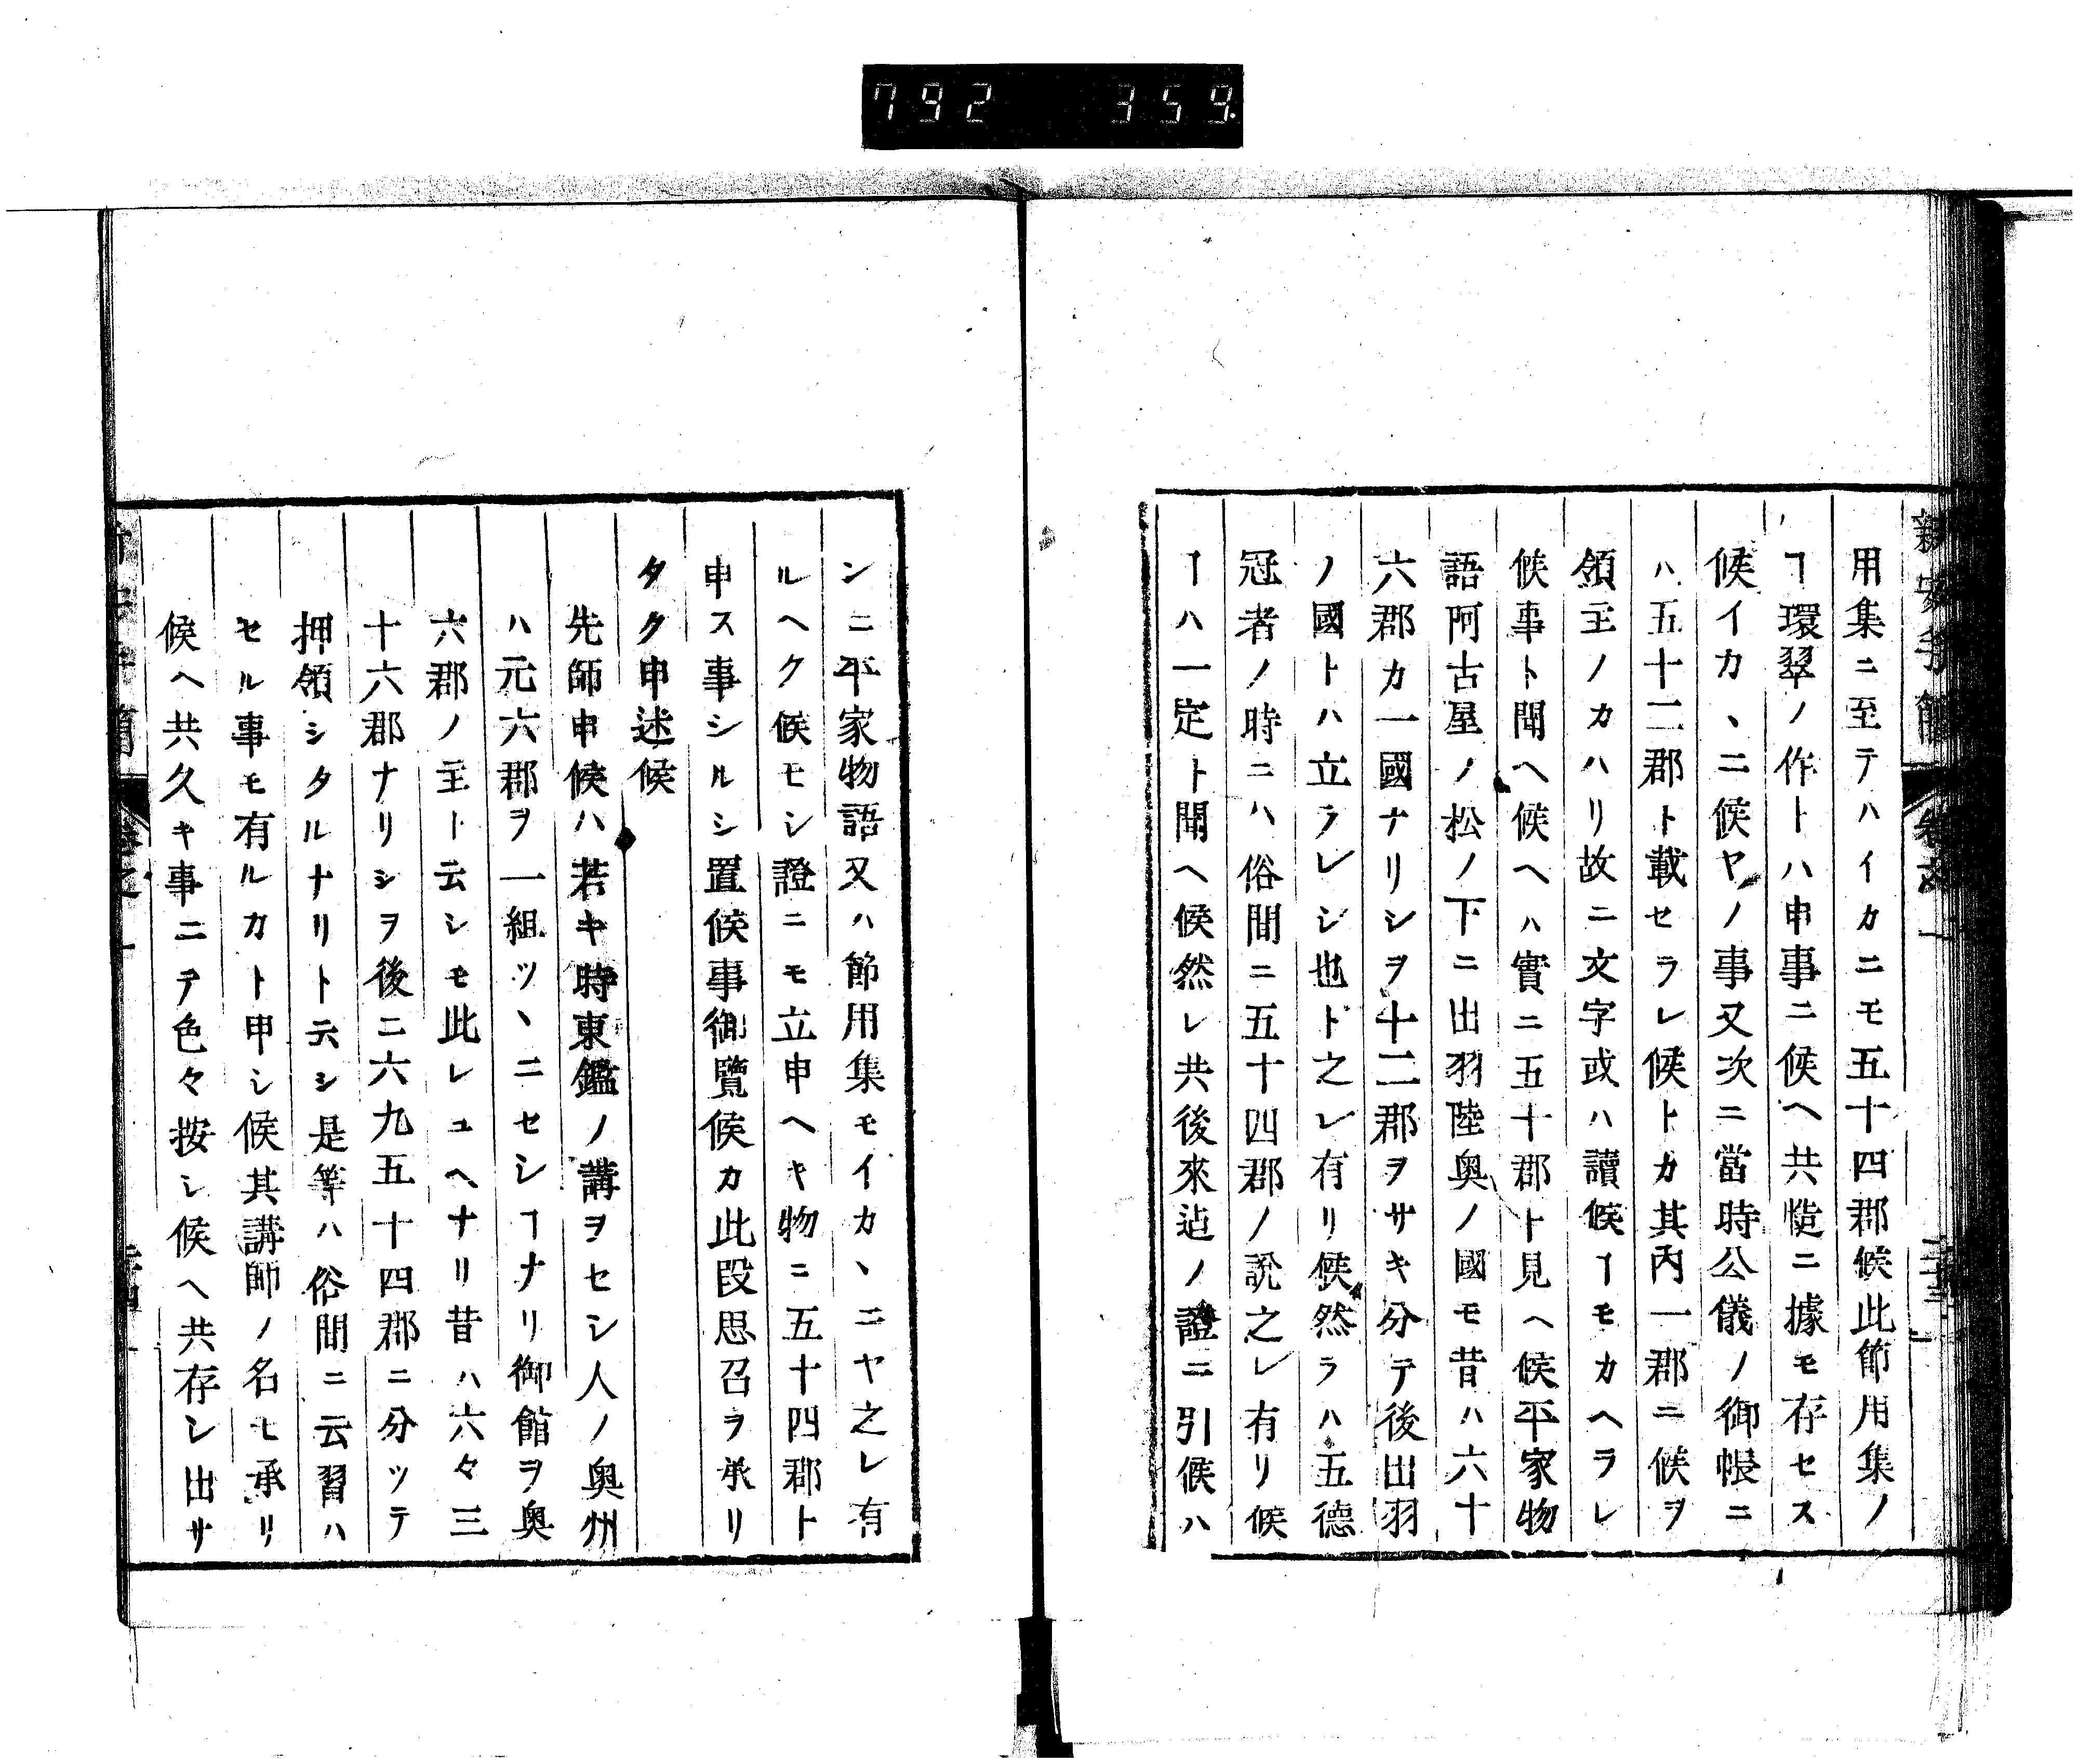 792 359
新安手簡 巻之一
用集ニ至テハイカニモ五十四郡候此節用集ノ
ヿ環翠ノ作トハ申事ニ候ヘ共慥ニ據モ存セス
候イカヽニ候ヤノ事又次ニ當時公儀ノ御帳ニ
ハ五十二郡ト載セラレ候トカ其内一郡ニ候ヲ
領主ノカハリ故ニ文字或ハ讀候ヿモカヘラレ
候事ト聞ヘ候ヘハ實ニ五十郡ト見ヘ候平家物
語阿古屋ノ松ノ下ニ出羽陸奥ノ國モ昔ハ六十
六郡カ一國ナリシヲ十二郡ヲサキ分テ後出羽
ノ國トハ立ラレシ也ト之レ有リ候然ラハ五德
冠者ノ時ニハ俗間ニ五十四郡ノ說之レ有リ候
ヿハ一定ト聞ヘ候然レ共後來迠ノ證ニ引候ハ
ンニ平家物語又ハ節用集モイカヽニヤ之レ有
ルヘク候モシ證ニモ立申ヘキ物ニ五十四郡ト
申ス事シルシ置候事御覽候カ此段思召ヲ承リ
タク申述候
先師申候ハ若キ時東鑑ノ講ヲセシ人ノ奥州
ハ元六郡ヲ一組ツヽニセシヿナリ御館ヲ奥
六郡ノ主ト云シモ此レユヘナリ昔ハ六々三
十六郡ナリシヲ後ニ六九五十四郡ニ分ツテ
押領シタルナリト云シ是等ハ俗間ニ云習ハ
セル事モ有ルカト申シ候其講師ノ名モ承リ
候ヘ共久キ事ニテ色々按シ候ヘ共存シ出サ